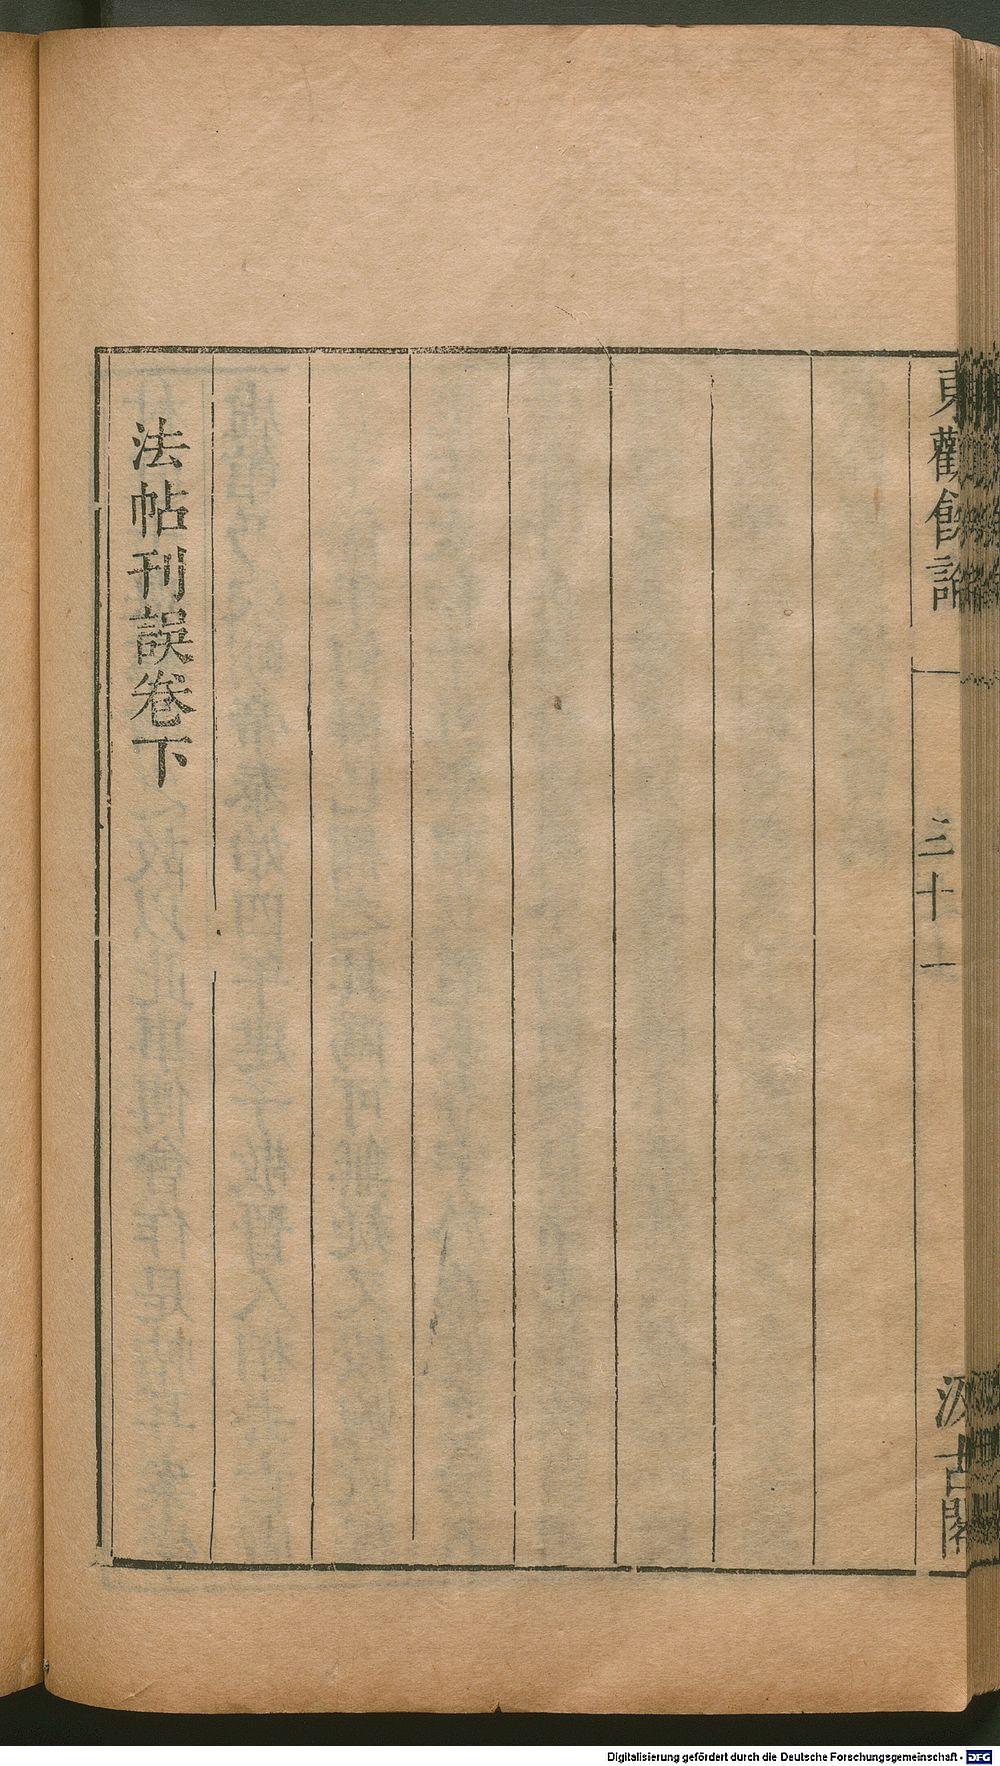 東觀餘論
三十一
汲古閣
法帖刊誤卷下
Digitalisierung gefördert durch die Deutsche Forschungsgemeinschaft - DFG